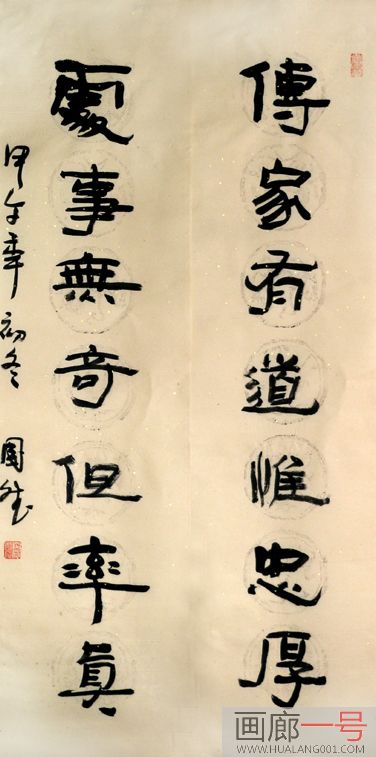 傳家有道惟忠厚
處事無奇但率真
甲午年初冬
画廊一号
WWW.HUALANG001.COM